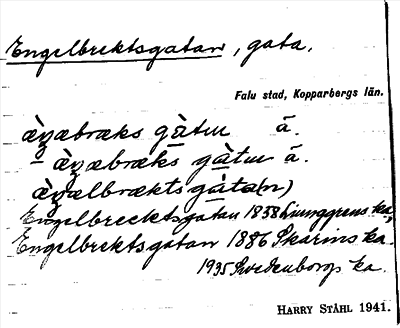 Engelbrektsgatan, gata.
Falu stad, Kopparbergs län.
àŋæbræks gàtııı ā.
àŋæbræks gàtııı ā.
àŋælbræktsgàta(n)
Engelbrecktsgatan 1838 Ljunggrens ka,
Engelbrektsgatan 1886 Skarins ka.
1935 Swedenborgs ka.
HARRY STÅHL 1941.